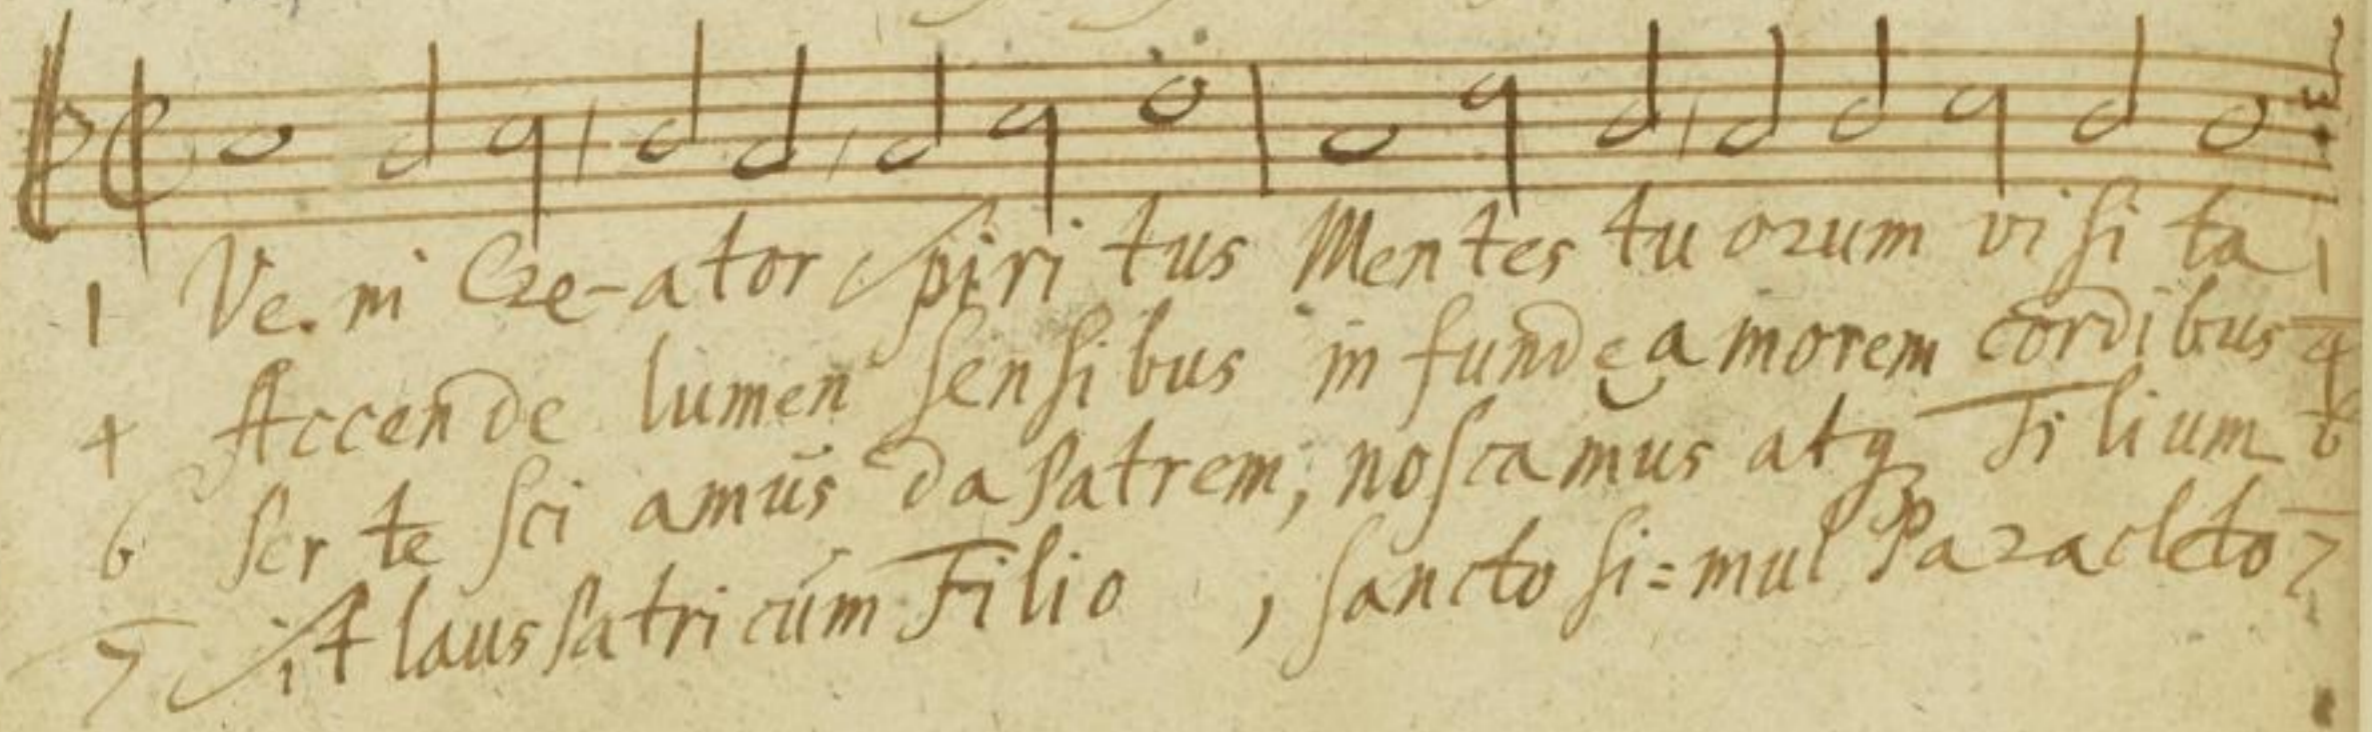 1 Ve. ni Cre-ator Spiri tus Mentes tu orum vi si ta 1
4 Accende lumen sensibus in funde amorem cordibus 4
6 Per te sci amus da Patrem, noscamus atq Filium 6
7 Sit laus Patri cum Filio , sancto si=mul Paracleto 7